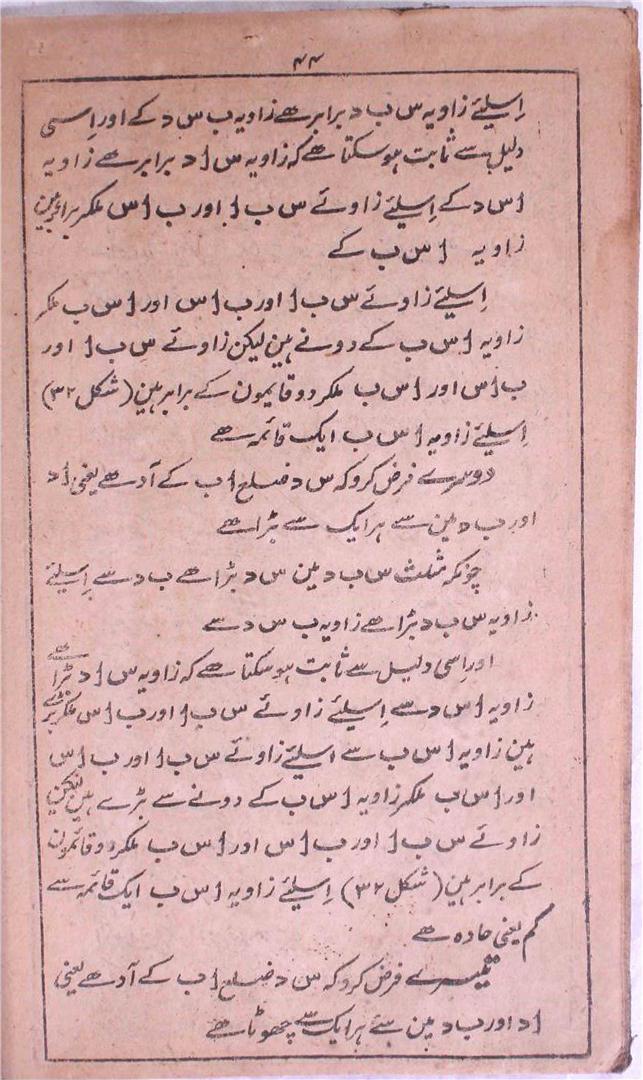 ۴۴
اِسلئے زاویہ س ب د برابر ھے زاویہ ب س د کے اور اِسی
دلیل سے ثابت ہوسکتا ھے کہ زاویہ س ا د برابر ھے زاویہ
ا س د کے اِسلئے زاوئے س ب ا اور ب ا س ملکر برابر ہین
زاویہ ا س ب کے
اِسلئے زاوئے س ب ا اور ب ا س اور ا س ب ملکر
زاویہ ا س ب کے دونے ہین لیکن زاوئے س ب ا اور
ب ا س اور ا س ب ملکر دو قایمون کے برابر ہین (شکل ۳۲)
اِسلئے زاویہ ا س ب ایک قائمہ ھے
دوسرے فرض کروکہ س د ضلع ا ب کے آدھے یعنی ا د
اور ب د مین سے ہر ایک سے بڑا ھے
چونکہ مثلث س ب د مین س د بڑا ھے ب د سے اِسلئے
زاویہ س ب د بڑا ھے زاویہ ب س د سے
اور اِسی دلیل سے ثابت ہوسکتا ھے کہ زاویہ س ا د بڑا ھے
زاویہ ا س د سے اِسلئے زاوئے س ب ا اور ب ا س ملکر بڑے
ہین زاویہ ا س ب سے اسلئے زاوئے س ب ا اور ب ا س
اور ا س ب ملکر زاویہ ا س ب کے دونے سے بڑے ہین لیکن
زاوئے س ب ا اور ب ا س اور ا س ب ملکر دو قائمون
کے برابر ہین (شکل ۳۲) اِسلئے زاویہ ا س ب ایک قائمہ سے
کم یعنی حادہ ھے
تیسرے فرض کروکہ س د ضلع ا ب کے آدھے یعنی
ا د اور ب د مین سے ہر ایک سے چھوٹا ھے